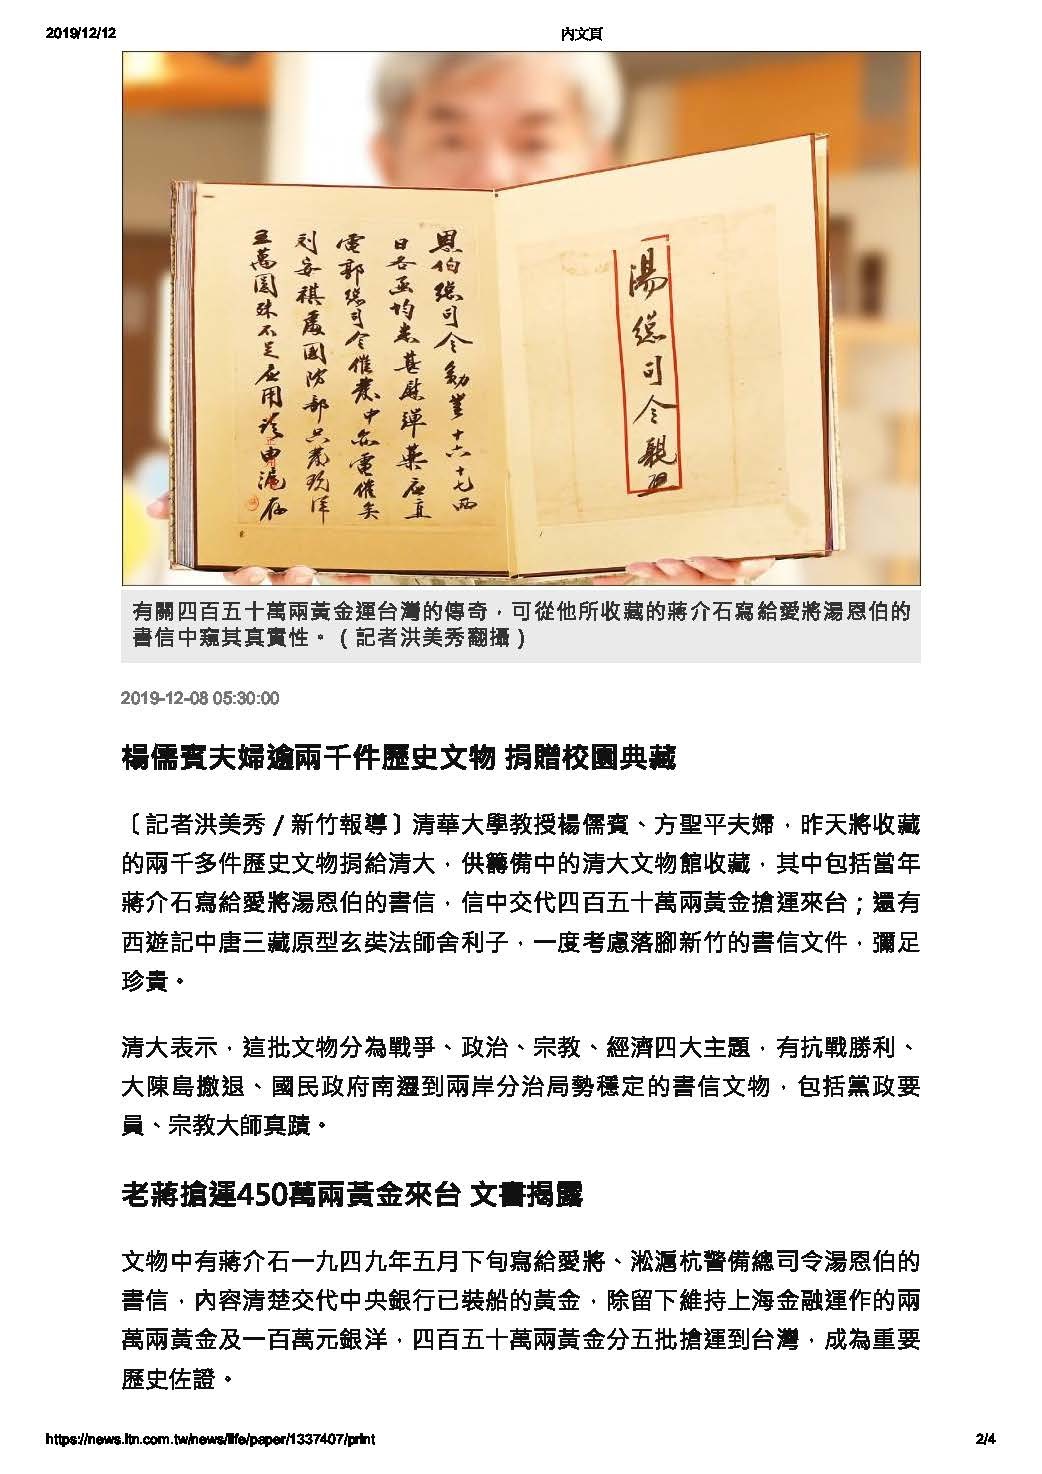 2019/12/12
內文頁
湯總司令親啟
恩伯總司令勛鑒十六十七兩
日各函均悉甚慰彈藥應直
電郭總司令催發中亦電催矣
劉安祺處國防部只發現洋
五萬圓殊不足應用
有關四百五十萬兩黃金運台灣的傳奇，可從他所收藏的蔣介石寫給愛將湯恩伯的
書信中窺其真實性。（記者洪美秀翻攝）
2019-12-08 05:30:00
楊儒賓夫婦逾兩千件歷史文物 捐贈校園典藏
〔記者洪美秀／新竹報導〕清華大學教授楊儒賓、方聖平夫婦，昨天將收藏
的兩千多件歷史文物捐給清大，供籌備中的清大文物館收藏，其中包括當年
蔣介石寫給愛將湯恩伯的書信，信中交代四百五十萬兩黃金搶運來台；還有
西遊記中唐三藏原型玄奘法師舍利子，一度考慮落腳新竹的書信文件，彌足
珍貴。
清大表示，這批文物分為戰爭、政治、宗教、經濟四大主題，有抗戰勝利、
大陳島撤退、國民政府南遷到兩岸分治局勢穩定的書信文物，包括黨政要
員、宗教大師真蹟。
老蔣搶運450萬兩黃金來台 文書揭露
文物中有蔣介石一九四九年五月下旬寫給愛將、淞滬杭警備總司令湯恩伯的
書信，內容清楚交代中央銀行已裝船的黃金，除留下維持上海金融運作的兩
萬兩黃金及一百萬元銀洋，四百五十萬兩黃金分五批搶運到台灣，成為重要
歷史佐證。
https://news.ltn.com.tw/news/life/paper/1337407/print
2/4